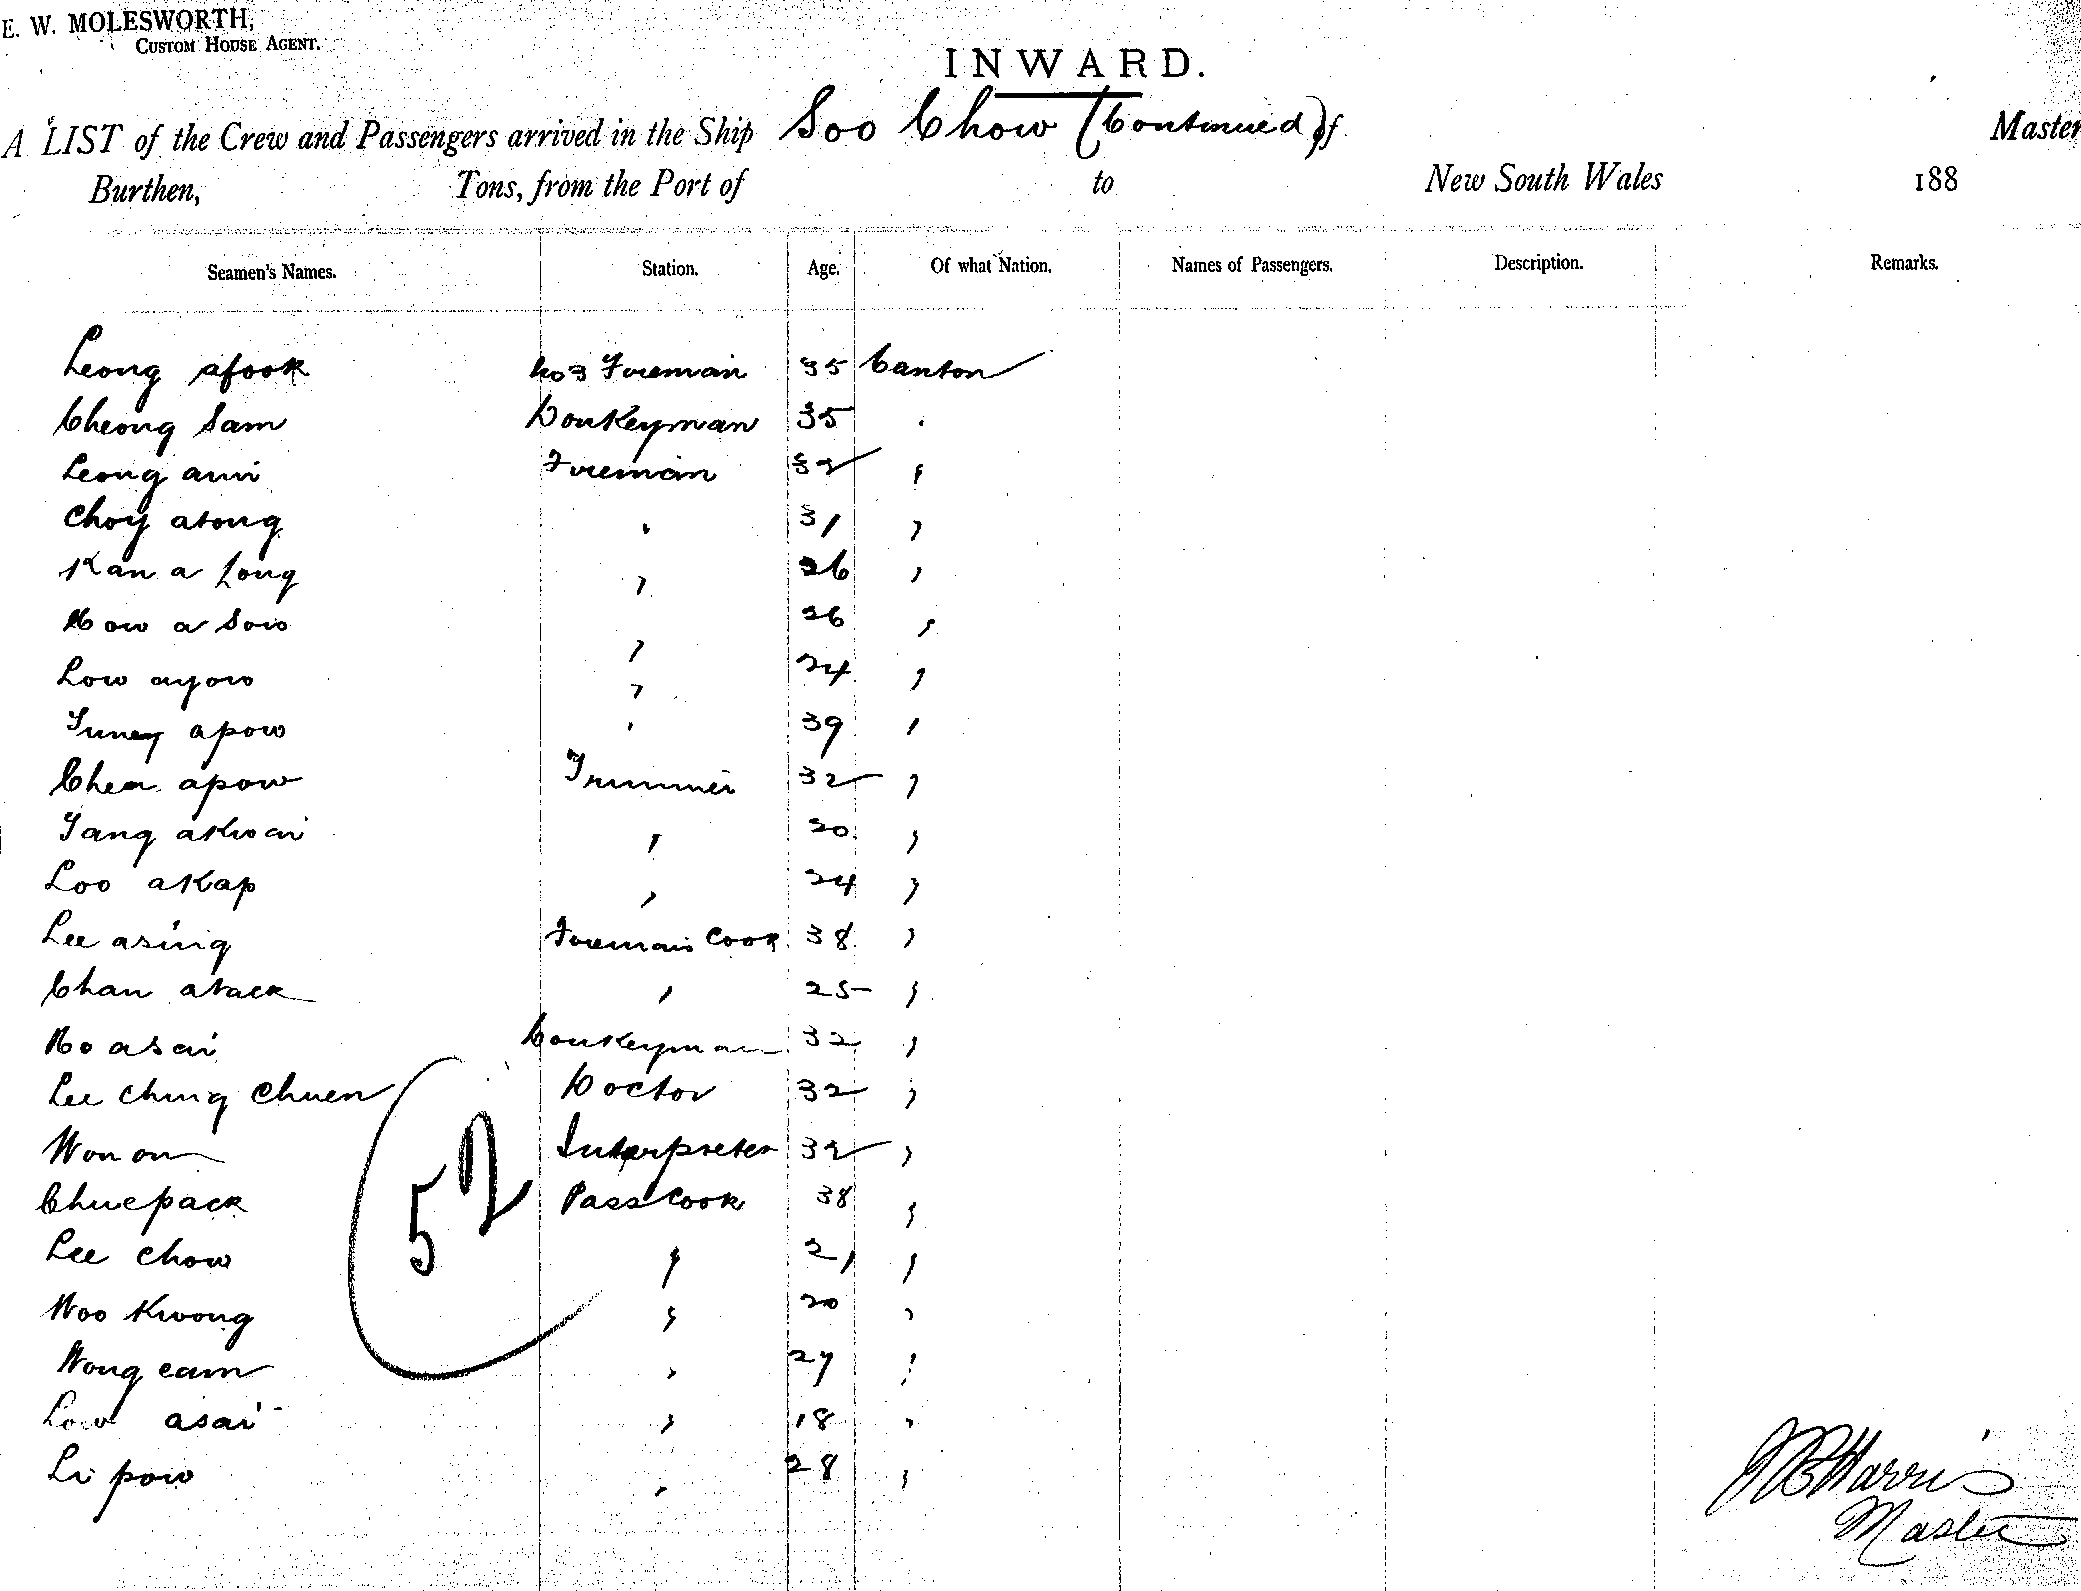 E. W. MOLESWORTH,
CUSTOM HOUSE AGENT.
INWARD.
A LIST of the Crew and Passengers arrived in the Ship Soo Chow (Continued) of Master
Burthen, Tons, from the Port of to New South Wales 188
Seamen's Names. Station. Age. Of what Nation. Names of Passengers. Description. Remarks.
Leong afook No 3 Fireman 35 Canton
Cheong Sam Donkeyman 35 "
Leong Fireman 32 "
Choy atong " 31 "
Kan a Long " 26 "
How a Sow " 26 "
Low ayow " 24 "
apow " 39 "
Chen apow Trimmer 32 "
Tang akwai " 20 "
Loo akap " 24 "
Lee asing Firemans Cook 38 "
Chan atack " 25 "
Ho asai Donkeyman 32 "
Lee Ching Chuen Doctor 32 "
Won on Interpreter 32 "
Chuepack Pass Cook 38 "
Lee Chow " 21 "
Woo Kwong " 20 "
Wong eam " 27 "
Low asai " 18 "
Li pow " 28 "
52
Harris
Master